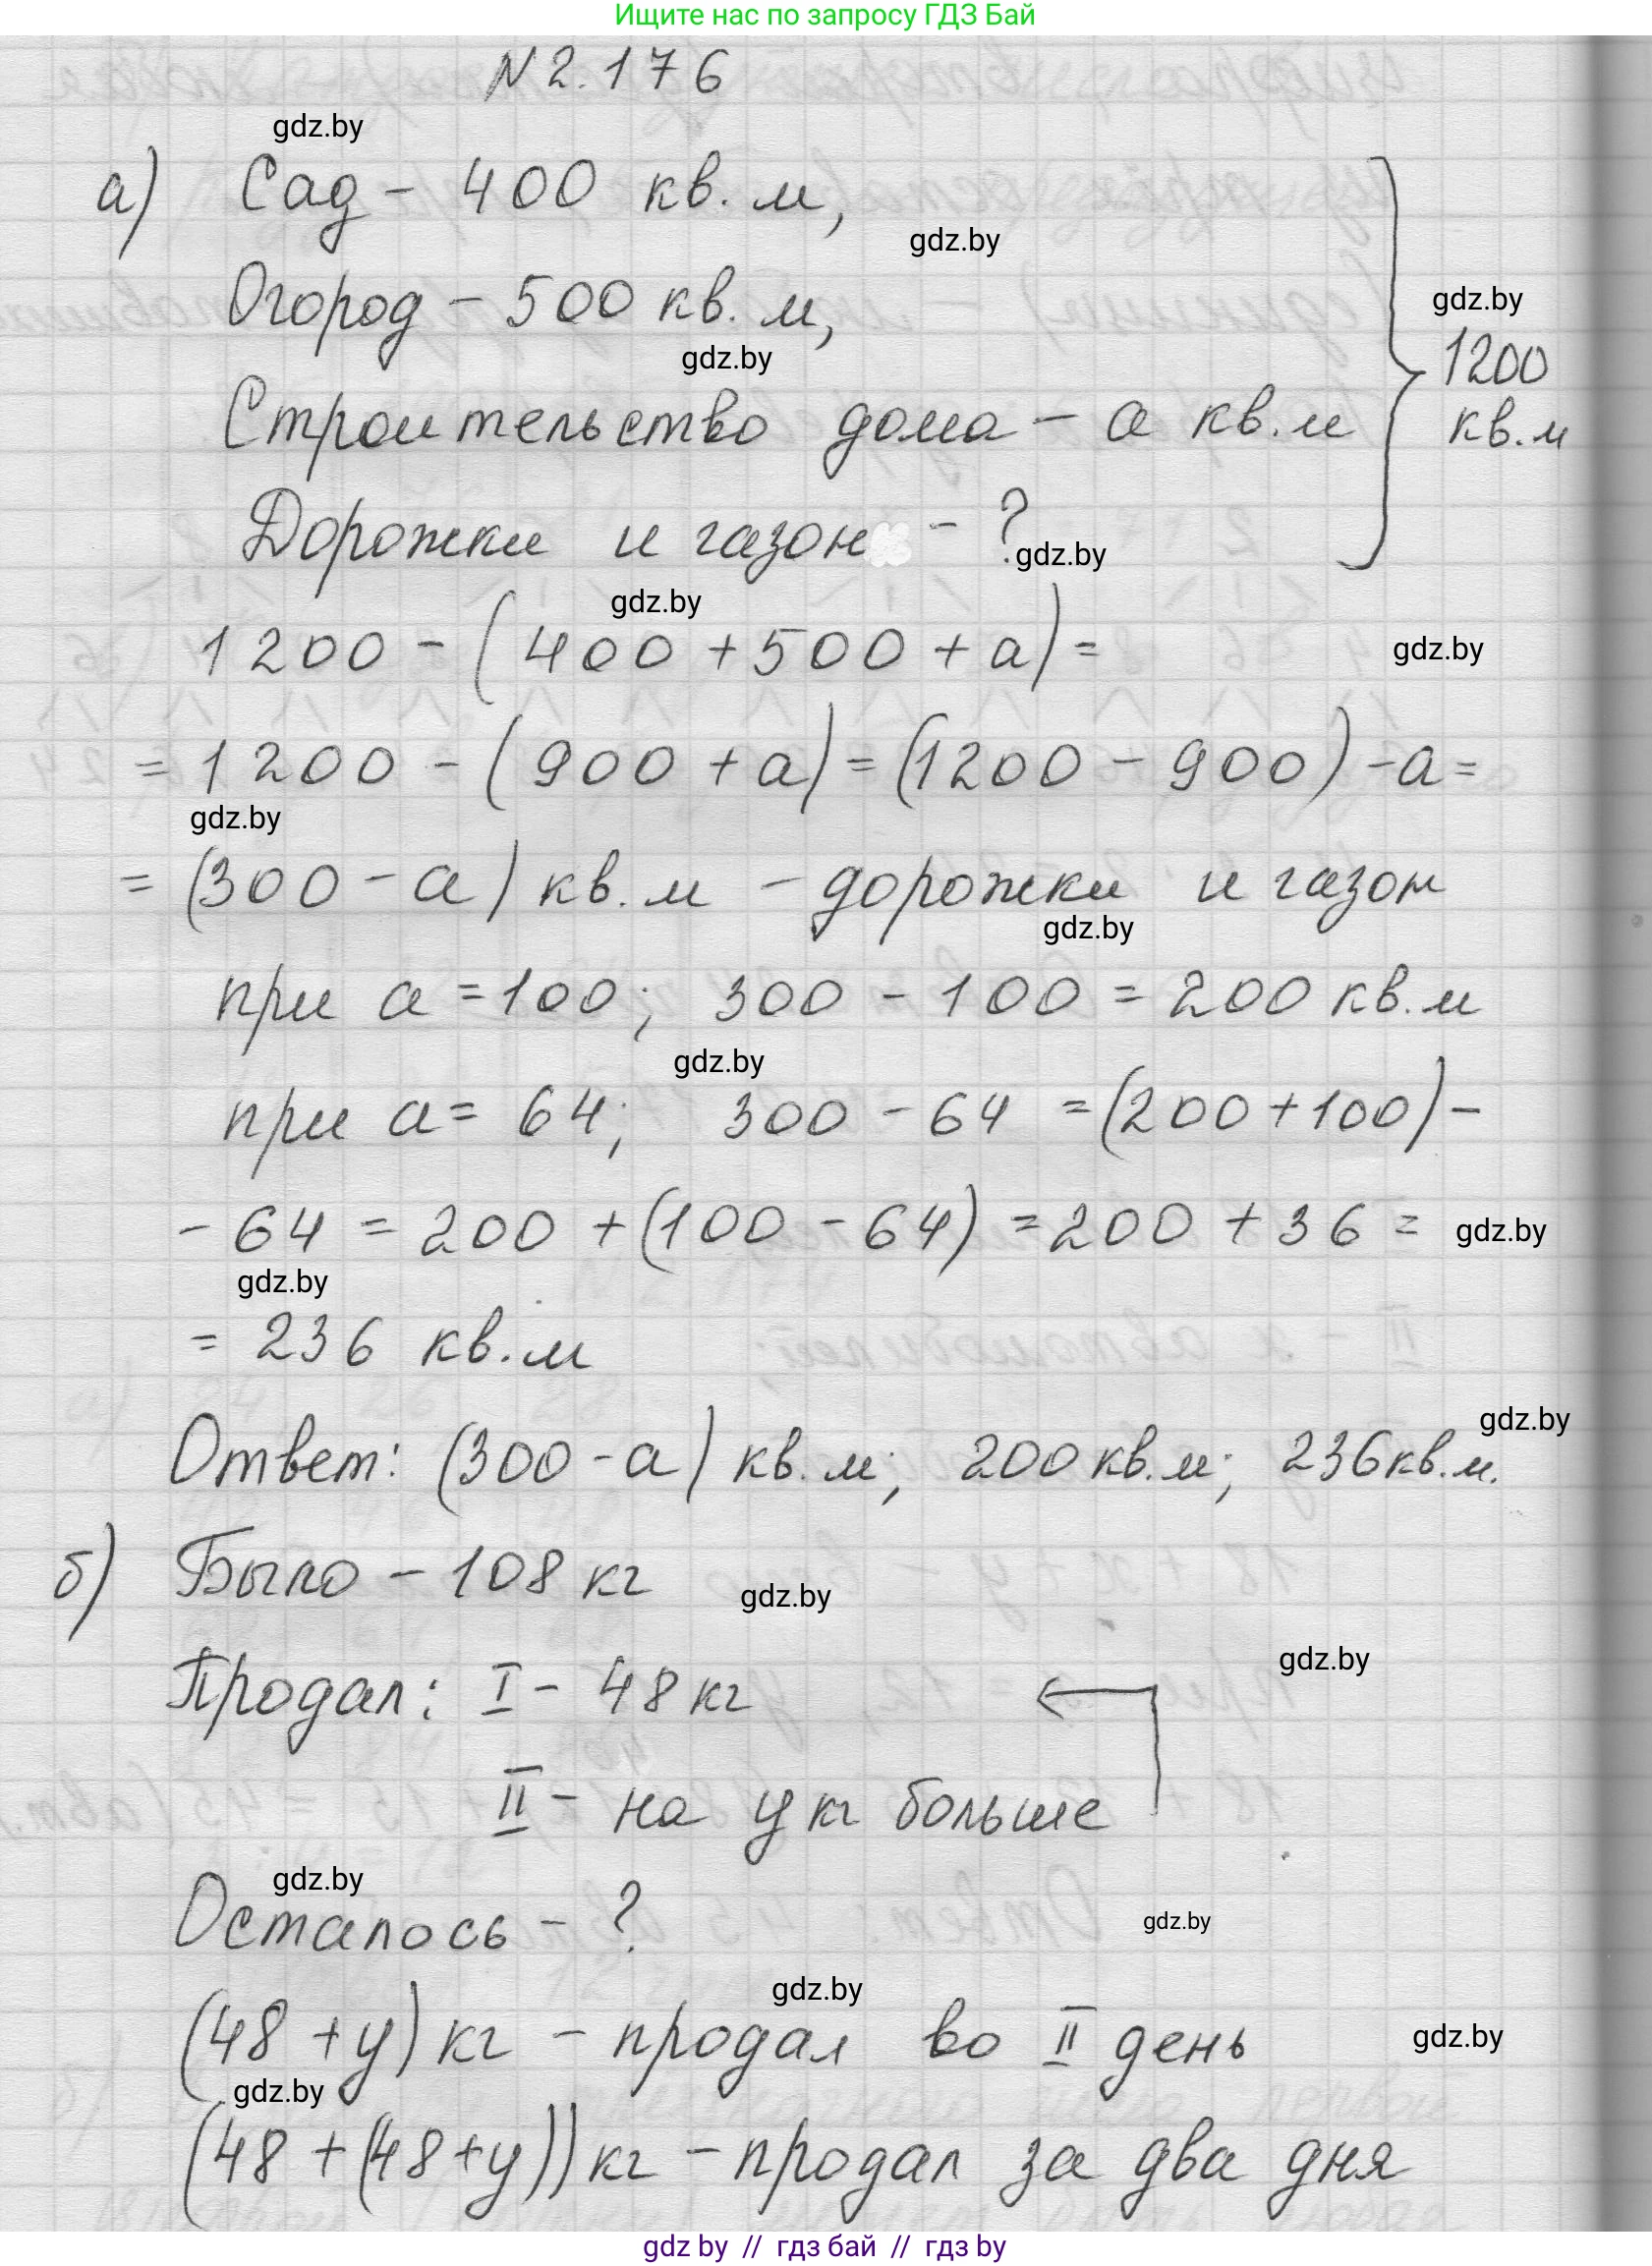 Ищите нас по запросу ГДЗ Бай
N 2.176
gdz.by
а) Сад - 400 кв. м,
gdz.by
Огород - 500 кв. м,
gdz.by
gdz.by
1200
кв.м
Строительство дома - а кв.м
Дорожки и газон - ?
gdz.by
gdz.by
1200 - (400 + 500 + а) =
gdz.by
= 1200 - (900 + а) = (1200 - 900) - а =
gdz.by
= (300 - а) кв. м - дорожки и газон
gdz.by
при а = 100; 300 - 100 = 200 кв. м
gdz.by
при а = 64; 300 - 64 = (200 + 100) -
- 64 = 200 + (100 - 64) = 200 + 36 =
gdz.by
gdz.by
= 236 кв. м
gdz.by
Ответ: (300 - а) кв. м; 200 кв. м; 236 кв. м.
б) Было - 108 кг
gdz.by
gdz.by
Продал: I - 48 кг
II - на у кг больше
gdz.by
Осталось - ?
gdz.by
gdz.by
(48 + у) кг - продал во II день
gdz.by
gdz.by
(48 + (48 + у)) кг - продал за два дня
gdz by // гдз бай // гдз by